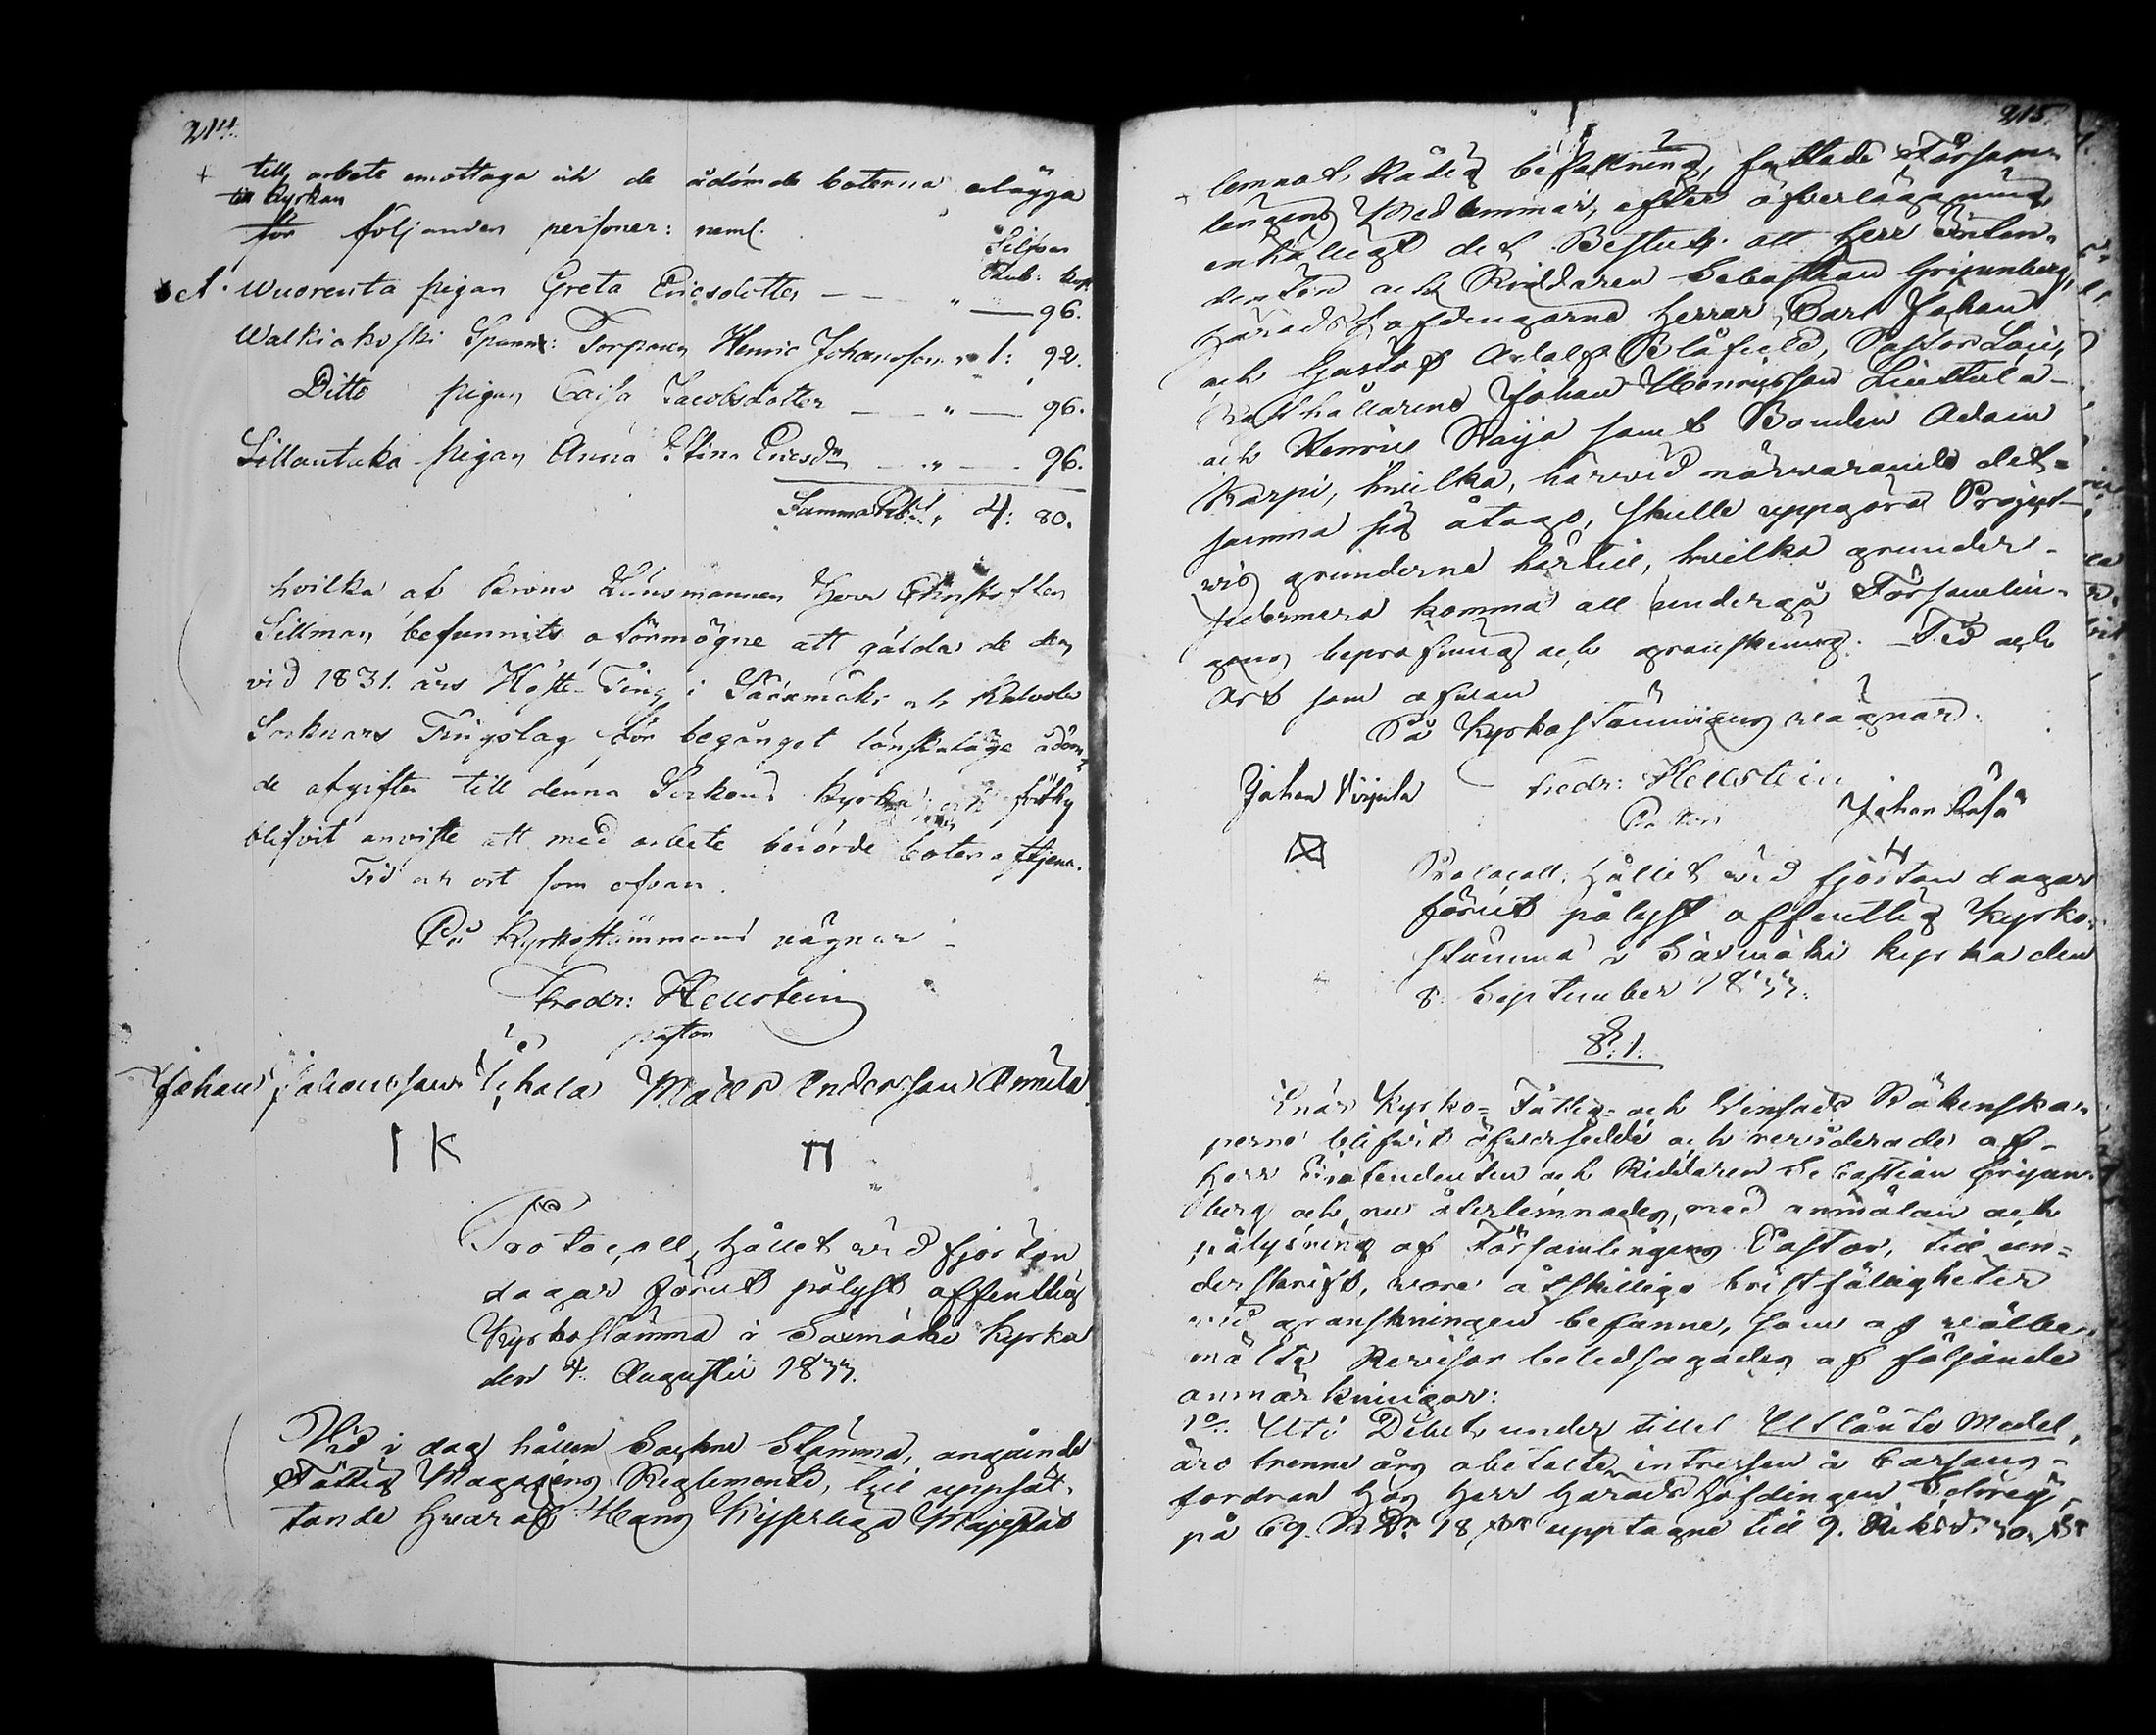 214.
till arbete emottaga och de ådömde böterna erlägga
till Kyrkan
för följanden personer: neml.
Silfver
Rub. Kop.
Wuorenta pigan Greta Ericsdotter — — " — 96.
Walkiakoski Spannm: Torparen Henric Johansson " 1: 92.
Ditto pigan Caisa Jacobsdotter — — " — 96.
Sillantaka pigan Anna Stina Ericsdr — " — 96.
Summa Rub. S. " 4: 80.
hvilka af Krono Länsmannen Herr Christoffer
Sillman befunnits oförmögne att gälda de dem
vid 1831. års Höste-Ting i Sääxmäki och Kalvola
Soknars Tingslag för begånget lönskaläge ådöm-
de afgifter till denna Sockens Kyrka; och förthy
blifvit anviste att med arbete berörde böter aftjena.
Tid och ort som ofvan.
På Kyrkostämmans vägnar
Fredr: Hellstein
pastor
Johan Johansson Uhala Matts Andersson Annila
I K
Protocoll, hållet wid fjorton
dagar förut pålyst offentlig
Kyrkostämma i Saxmäki Kyrka
den 4. Augustii 1833.
Wid i dag hållen Sockne Stämma, angående
Fattig Magazins Reglemente, till uppsät-
tande hwaraf Hans Kejserliga Majestät
215.
lemnat Nådig befallning, fattade Försam-
lingens Medlemmar, efter öfverläggning,
enhälligt det Beslut, att Herr Inten-
denten och Riddaren Sebastian Gripenberg,
Häradshöfdingarne Herrar Carl Johan
och Gustaf Adolf Blåfield, Pastor Loci,
Rusthållarene Johan Henricsson Liuttula
och Henric Waija samt Bonden Adam
Karpi, hwilka, härwid närwarande det-
samma sig åtago, skulle uppgöra Project-
wis grunderne härtill, hwilka grunder
sedermera komma att undergå Församlin-
gens bepröfning och granskning. Tid och
Ort som ofwan
På Kyrkostämmigens wägnar.
Johan Fredr: Hellstein Johan
Pastor
Protocoll, hållet wid fjorton dagar
förut pålyst offentlig Kyrko-
stämma i Säxmäki kyrka den
8. September 1833.
§. 1.
Enär Kyrko- Fattig- och Räkenska-
perne blifwit öfwersedde och reviderade af
Herr Intendenten och Riddaren Sebastian Gripen-
berg och nu återlemnades, med anmälan och
pålysning af Församlingens Pastor, till un-
derskrift, wore åtskillige bristfälligheter
wid granskningen befunne, som af wälbe-
mälte Revisor beledsagades af följande
anmärkningar:
1o. Uti Debet under titel Utlånte Medel,
äro trenne års obetalte intressen å Cassans
fordran hos Herr Häradshöfdingen
på 69. R:Dr 18 upptagne till 9. Riksd.